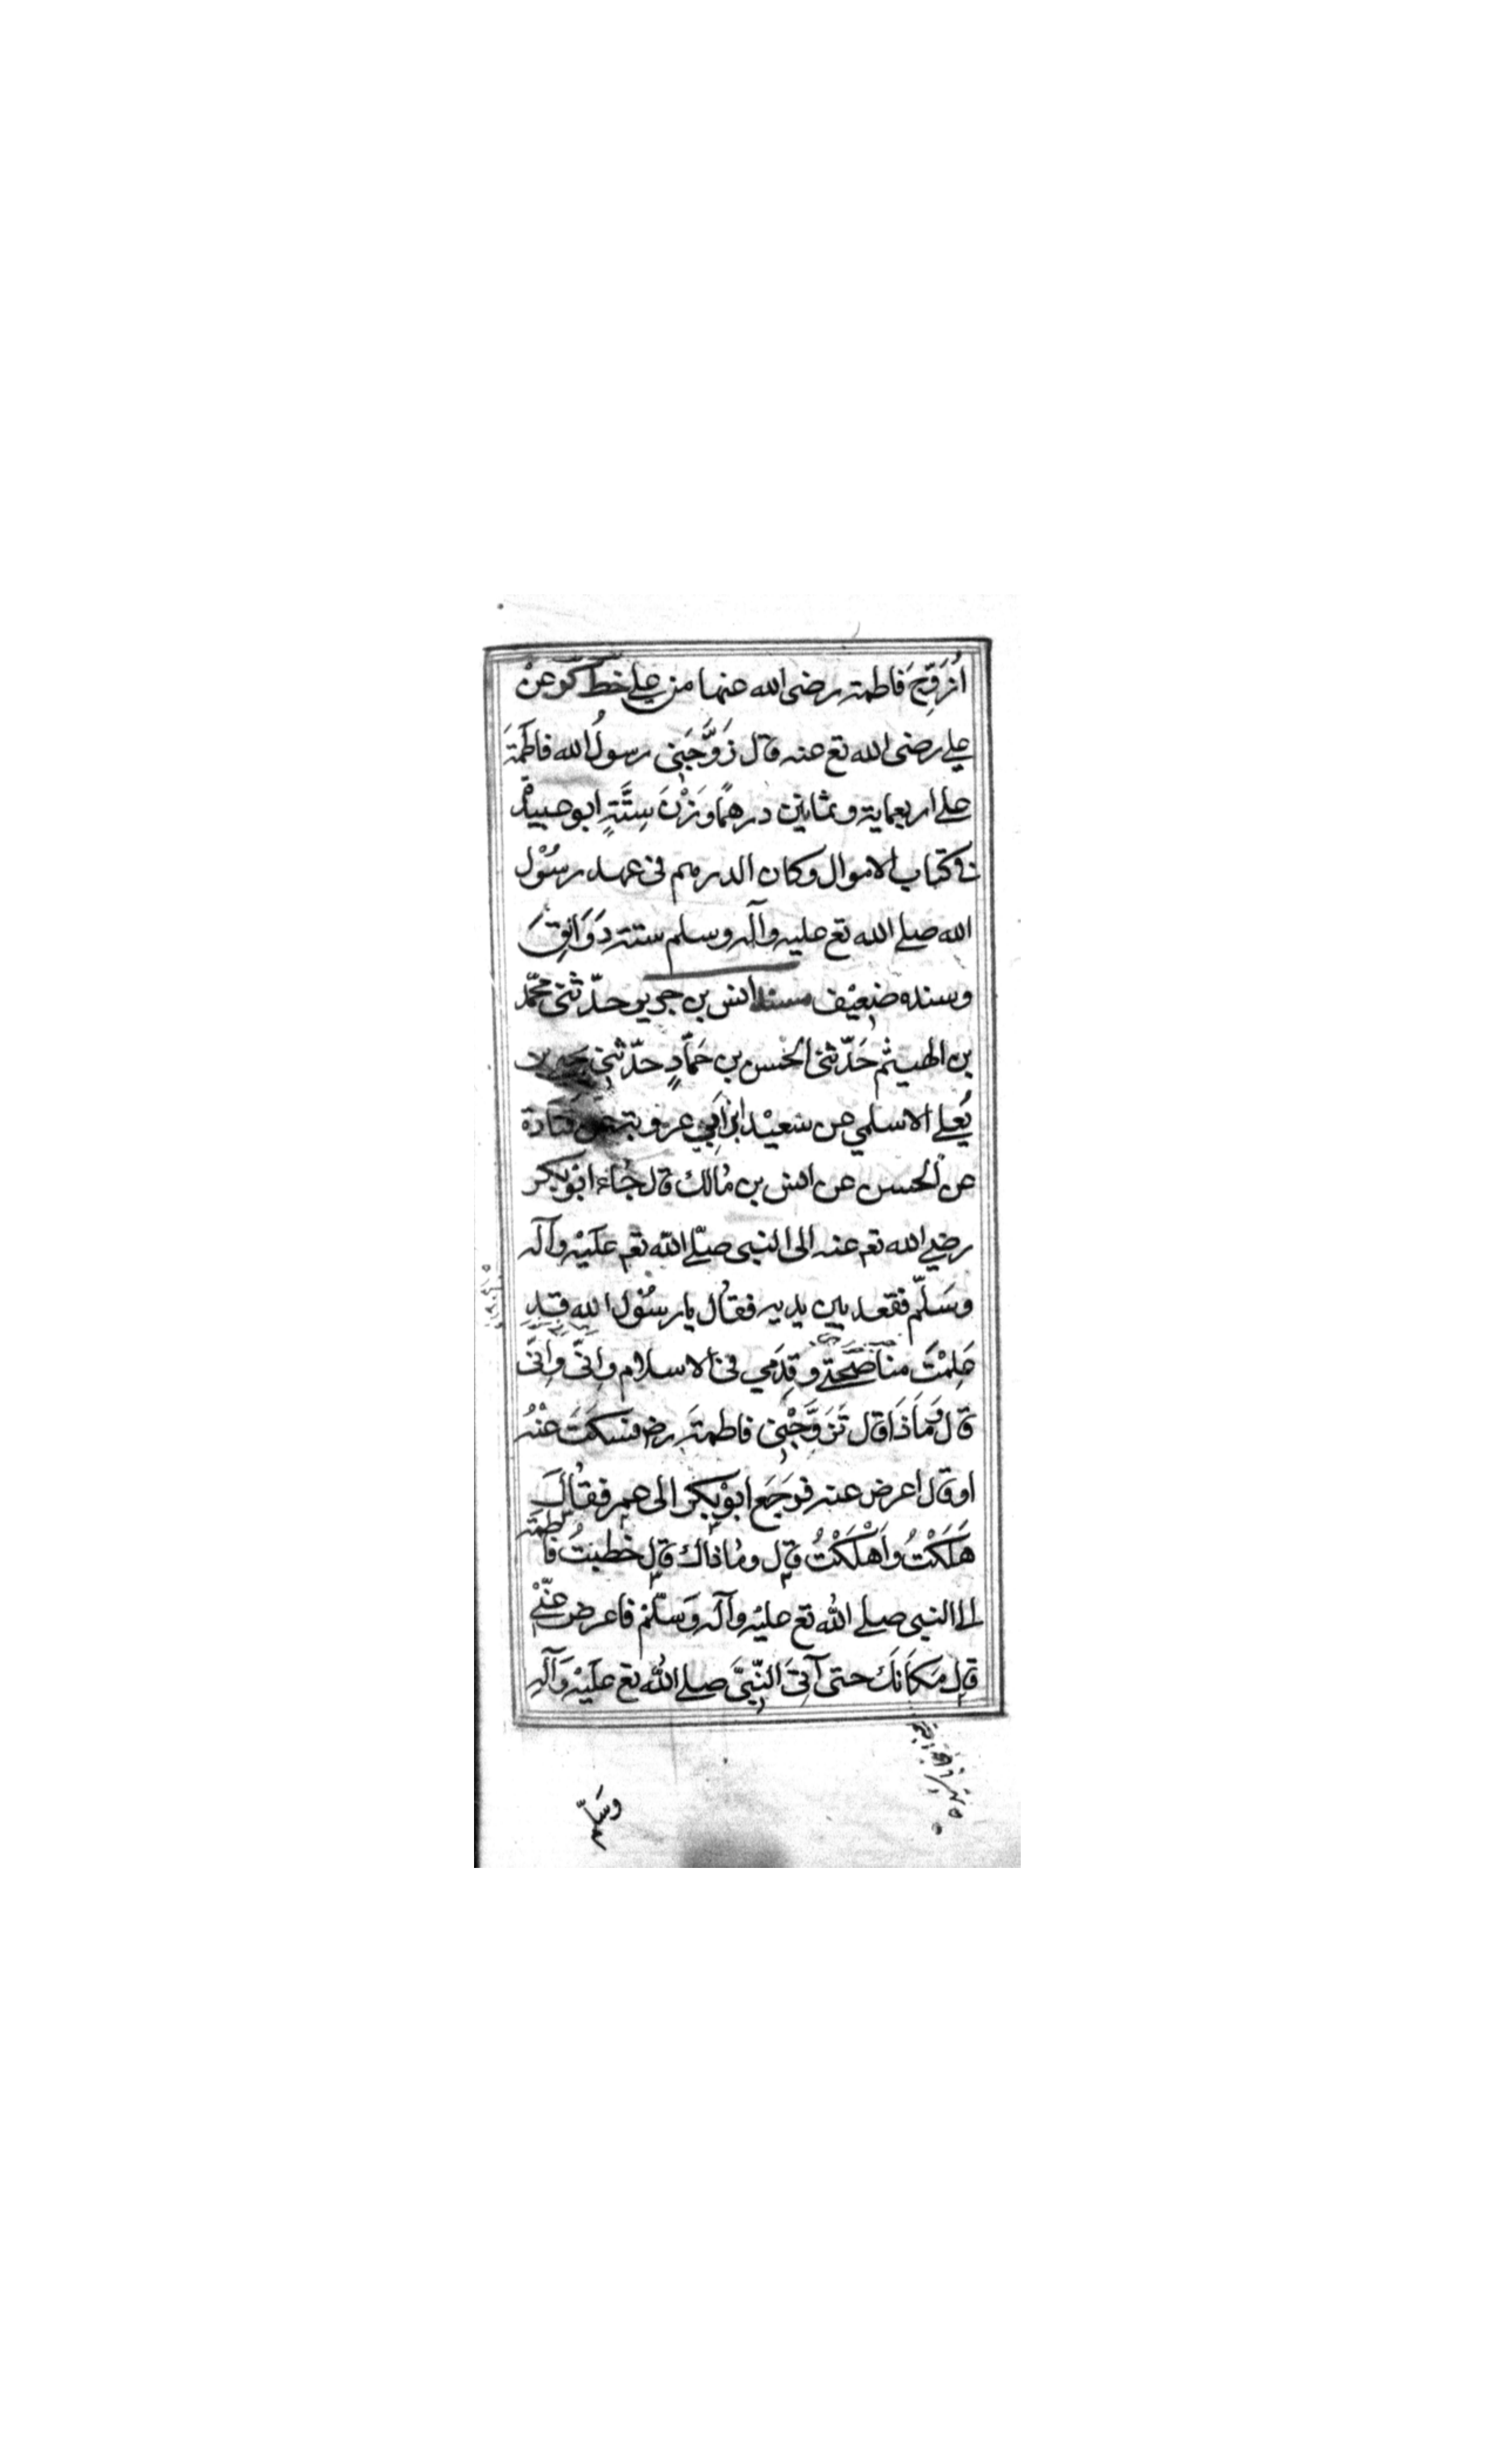 اُزَوِّجَ فاطمة رضى الله عنها من علي خط كر عن
علي رضى الله تع عنه قال زَوَّجَنِى رسولُ الله فاطمَةَ
على اربعماية وثمانين درهمًا وَزْنَ سِتَّةٍ ابو عبيد
فى كتاب الاموال وكان الدرهم فى عهد رسُوْل
الله صلے الله تع عليه وآله وسلم ستة دَوَانِقَ
وسنده ضعيف مسند انس بن جرير حدّثنى محمّد
بن الهيثم حَدّثنى الحسن بن حَمّادٍ حدّثنِى يحيى بن
يُعلے الاسلمي عن سَعيْد ابن اَبِي عروبة عن قتادة
عن الحسن عن انس بن مُالك قال جُاء ابوْبكر
رضي الله تع عنه الى النبى صلّے اللّه تع عَليْه وآله
وسَلّم فقعد بين يديه فقُال يا رسُوْل الله قد
عَلِمْتَ مناصَحَتِے وقِدَمِي فى الاسلام واِنّى واِنّى
قال وَمَاذَا قال تَزَوَّجْنِى فاطمةَ رض فسكَتَ عنْهُ
او قال اعرض عنه فرجَعَ ابوْبكر الى عمر فقُالَ
هَلَكْتُ وَاَهْلَكْتُ قال ومُا ذاك قال خطبتُ فاطمَة
الى النبى صلے اللّه تع عليْه وآله وَسَلّمْ فاعرض عنّے
قال مَكَانَكَ حتى آتِىَ النّبِىَّ صلے اللّه تع عَليْه وَآله
وسَلّم